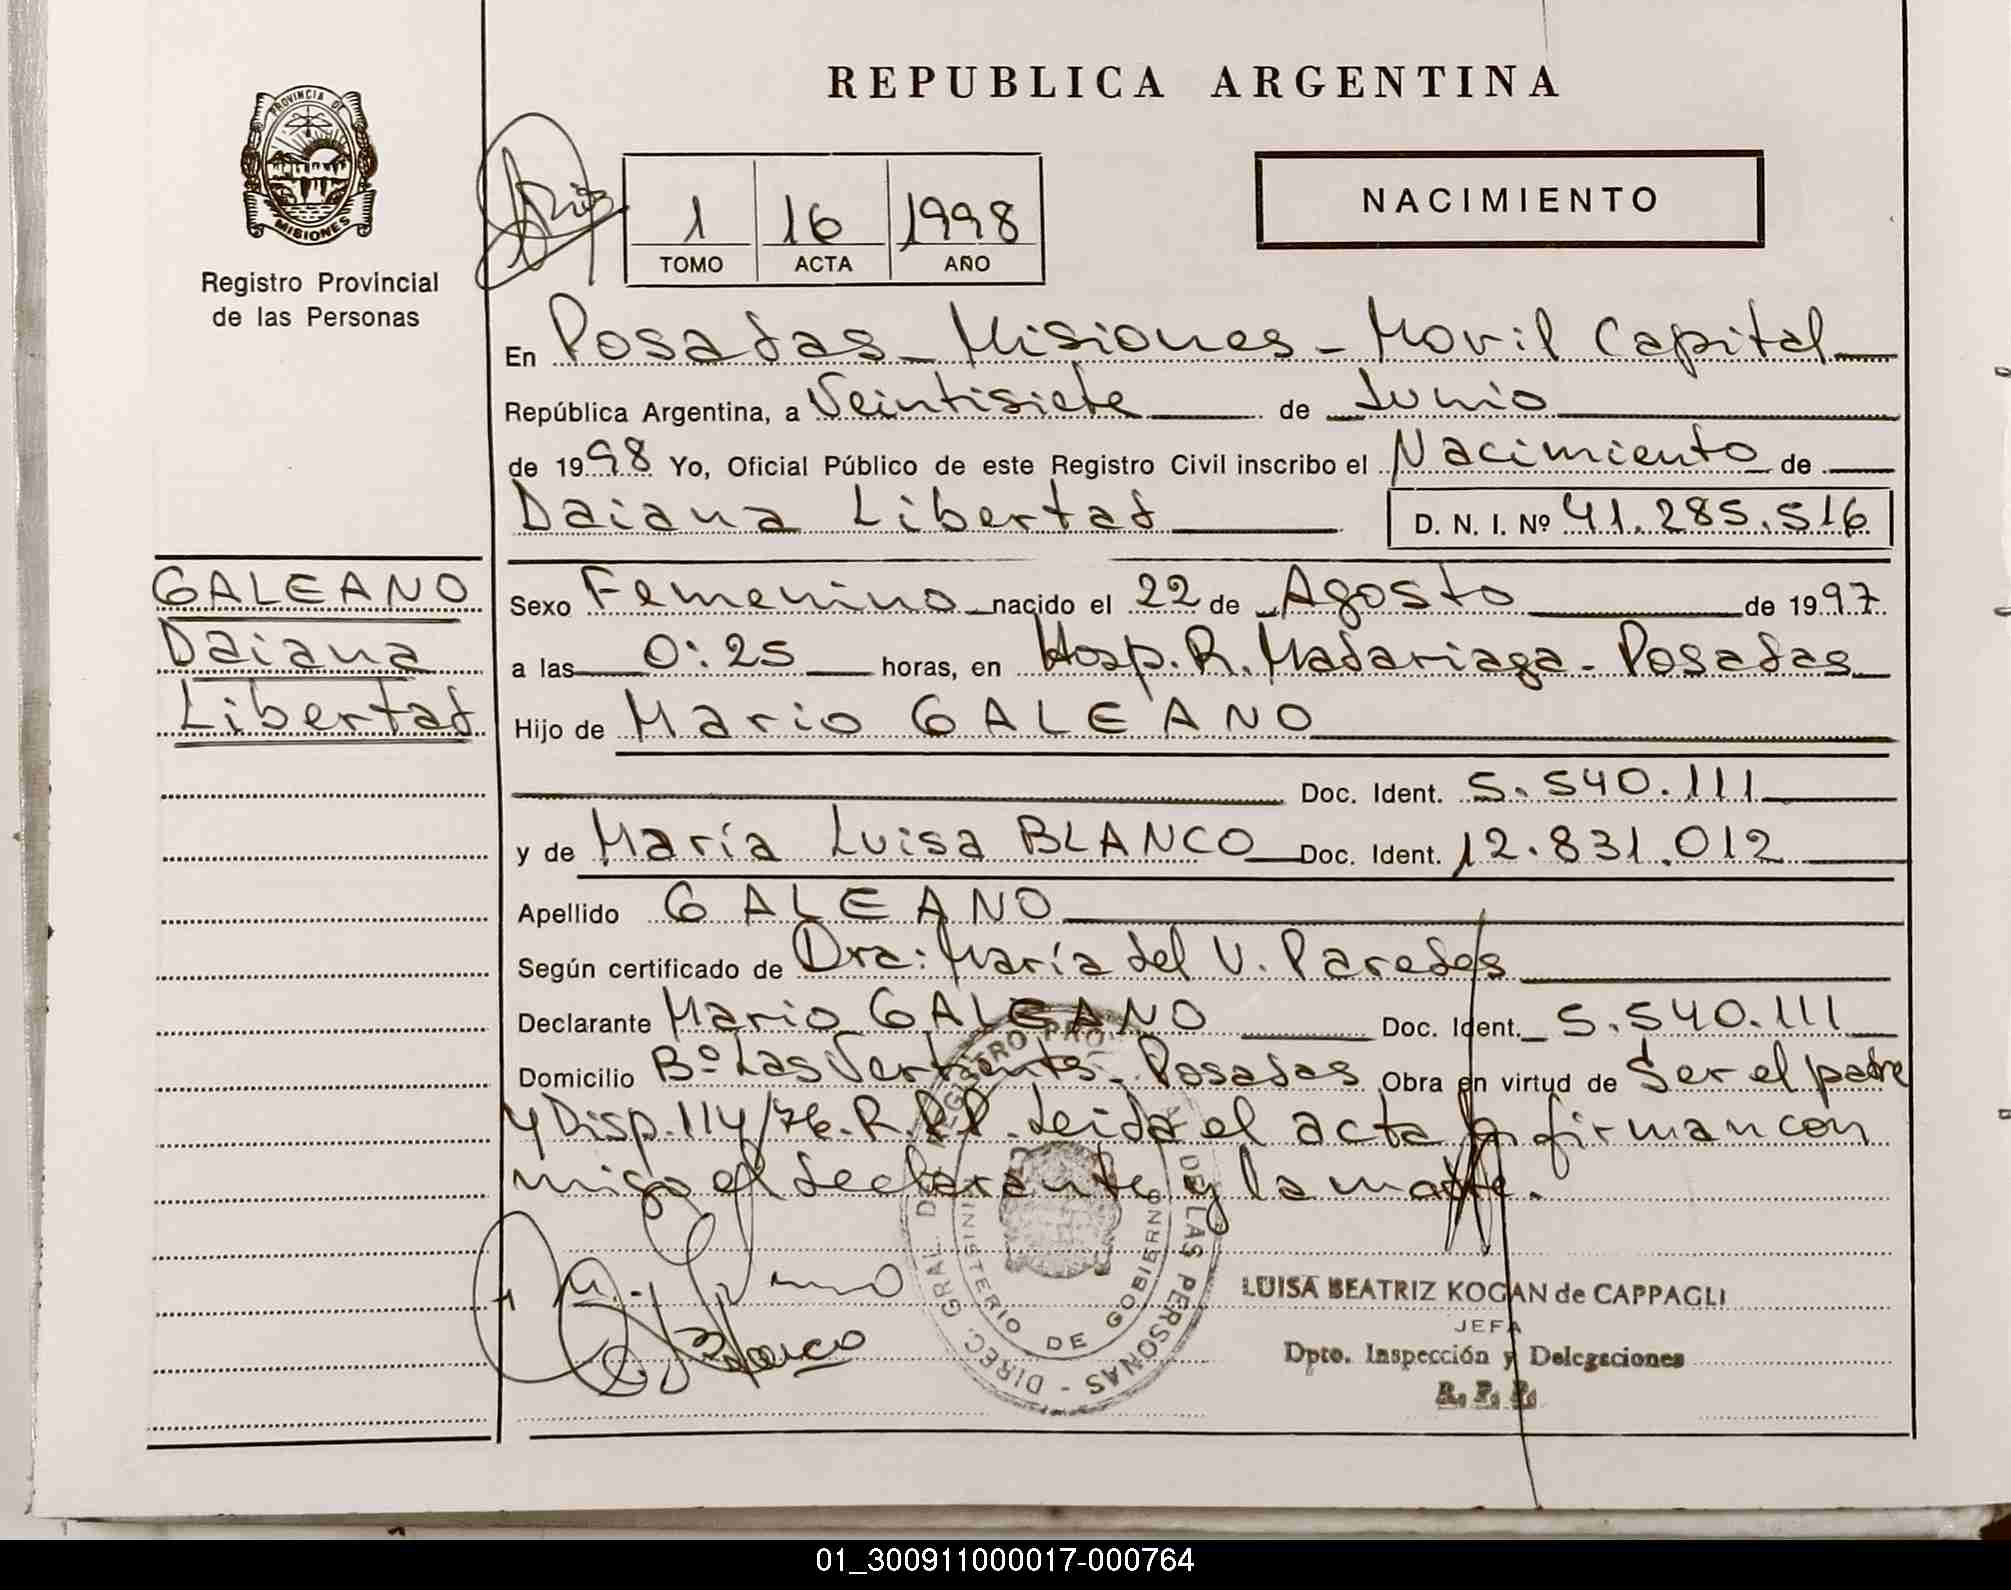 REPUBLICA ARGENTINA
PROVINCIA DE
MISIONES
Registro Provincial
de las Personas
1 16 1998
TOMO ACTA AÑO
NACIMIENTO
En Posadas - Misiones - Movil Capital
República Argentina, a Veintisiete de Junio
de 1998 Yo, Oficial Público de este Registro Civil inscribo el Nacimiento de
Daiana Libertad D. N. I. Nº 41.285.516
GALEANO
Daiana
Libertad
Sexo Femenino nacido el 22 de Agosto de 1997
a las 0:25 horas, en Hosp. R. Madariaga - Posadas
Hijo de Mario GALEANO
Doc. Ident. 5.540.111
y de María Luisa BLANCO Doc. Ident. 12.831.012
Apellido GALEANO
Según certificado de Dra: María del V. Paredes
Declarante Mario GALEANO Doc. Ident. 5.540.111
Domicilio Bº Las Vertientes - Posadas Obra en virtud de Ser el padre
y Disp. 114/76. R.P.P. Leída el acta firman con
migo el declarante y la madre.
Blanco
DIREC. GRAL. DEL REGISTRO PRO DE LAS PERSONAS -
MINISTERIO DE GOBIERNO
LUISA BEATRIZ KOGAN de CAPPAGLI
JEFA
Dpto. Inspección y Delegaciones
R. P. P.
01_300911000017-000764